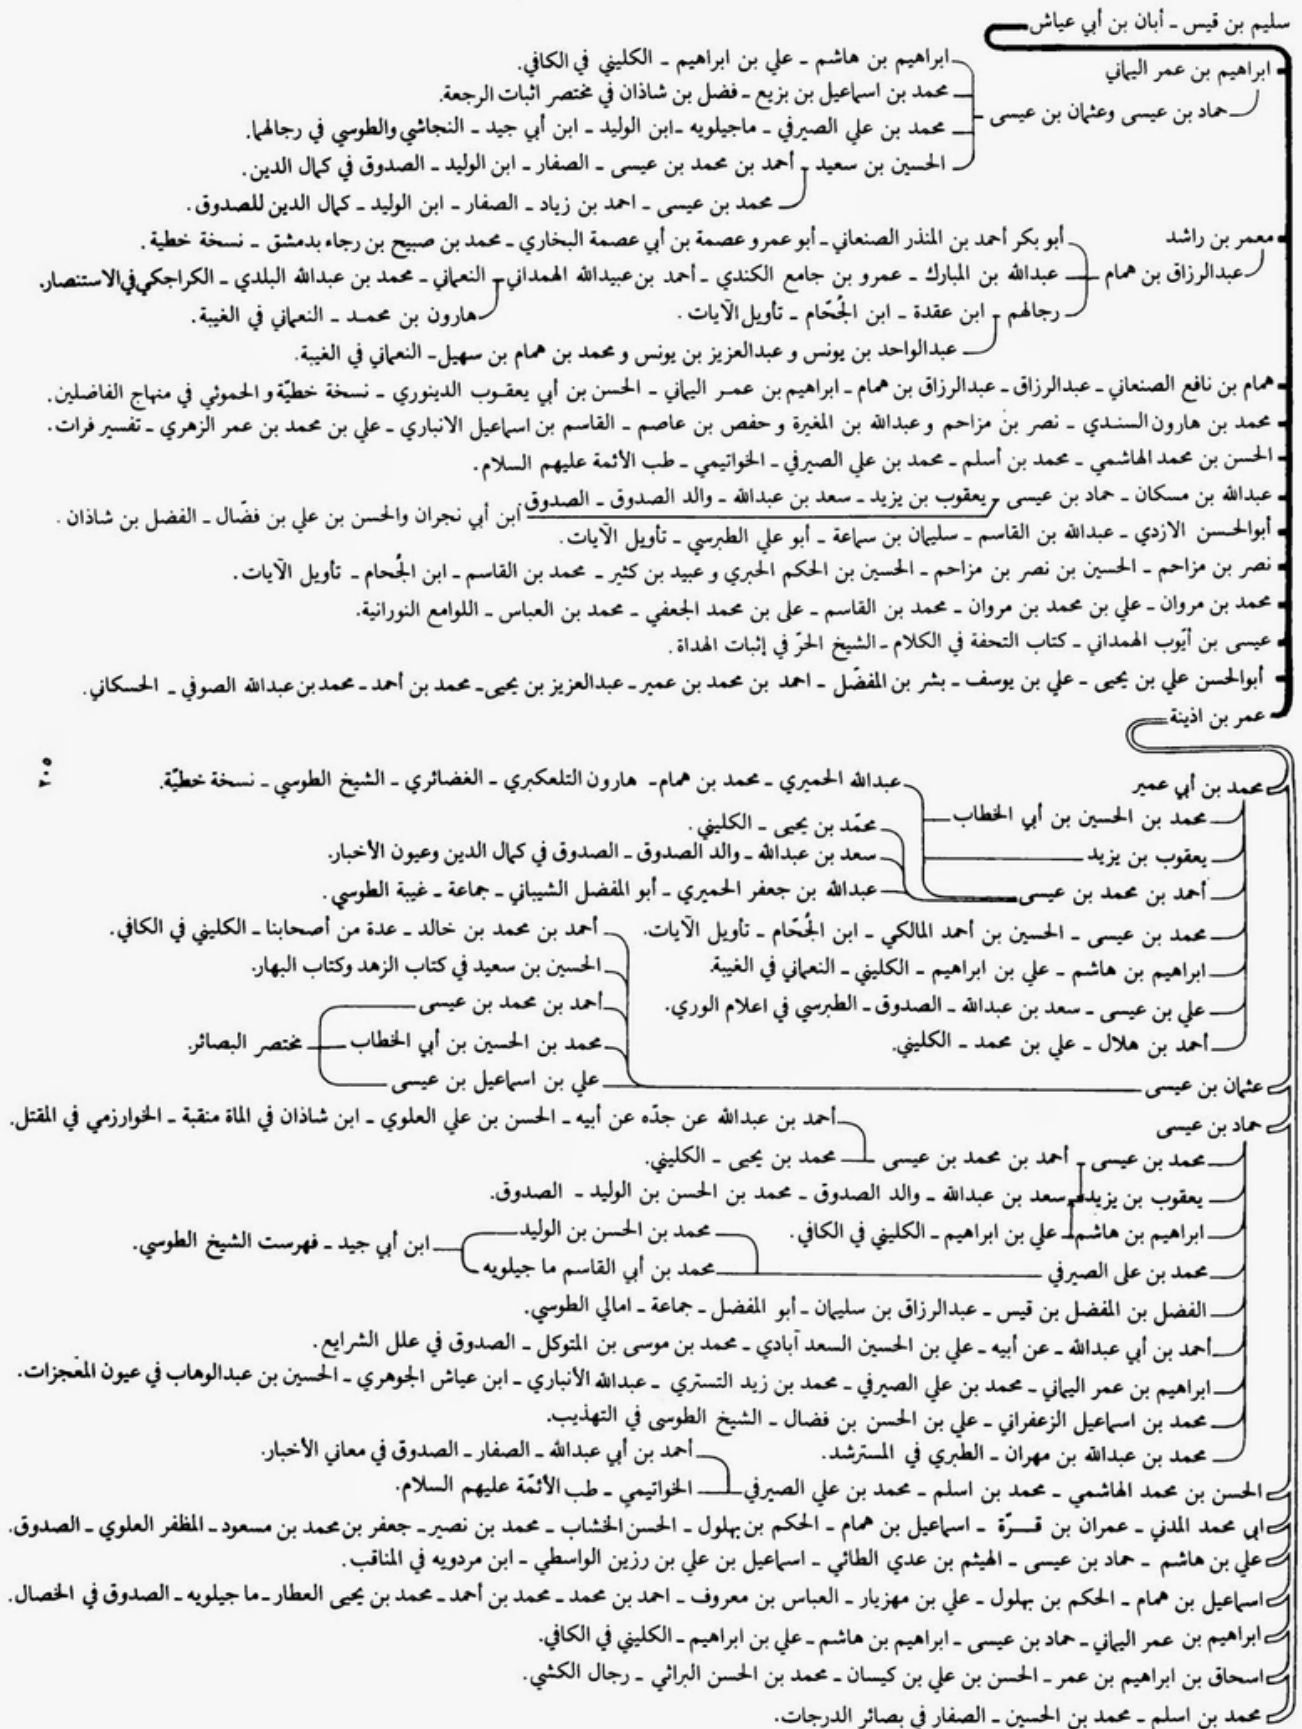 سليم بن قيس ـ أبان بن أبي عياش
ابراهيم بن عمر اليماني
حماد بن عيسى وعثمان بن عيسى
ابراهيم بن هاشم ـ علي بن ابراهيم ـ الكليني في الكافي.
محمد بن اسماعيل بن بزيع ـ فضل بن شاذان في مختصر اثبات الرجعة.
محمد بن علي الصيرفي ـ ماجيلويه ـ ابن الوليد ـ ابن أبي جيد ـ النجاشي والطوسي في رجالهما.
الحسين بن سعيد ـ أحمد بن محمد بن عيسى ـ الصفار ـ ابن الوليد ـ الصدوق في كمال الدين.
محمد بن عيسى ـ احمد بن زياد ـ الصفار ـ ابن الوليد ـ كمال الدين للصدوق.
معمر بن راشد
عبدالرزاق بن همام
أبو بكر أحمد بن المنذر الصنعاني ـ أبو عمرو عصمة بن أبي عصمة البخاري ـ محمد بن صبيح بن رجاء بدمشق ـ نسخة خطية.
عبدالله بن المبارك ـ عمرو بن جامع الكندي ـ أحمد بن عبيدالله الهمداني ـ النعماني ـ محمد بن عبدالله البلدي ـ الكراجكي في الاستنصار.
هارون بن محمد ـ النعماني في الغيبة.
رجالهم ـ ابن عقدة ـ ابن الجُحّام ـ تأويل الآيات.
عبدالواحد بن يونس و عبدالعزيز بن يونس و محمد بن همام بن سهيل ـ النعماني في الغيبة.
همام بن نافع الصنعاني ـ عبدالرزاق ـ عبدالرزاق بن همام ـ ابراهيم بن عمر اليماني ـ الحسن بن أبي يعقوب الدينوري ـ نسخة خطيّة و الحموئي في منهاج الفاضلين.
محمد بن هارون السندي ـ نصر بن مزاحم و عبدالله بن المغيرة و حفص بن عاصم ـ القاسم بن اسماعيل الانباري ـ علي بن محمد بن عمر الزهري ـ تفسير فرات.
الحسن بن محمد الهاشمي ـ محمد بن أسلم ـ محمد بن علي الصيرفي ـ الخواتيمي ـ طب الأئمة عليهم السلام.
عبدالله بن مسكان ـ حماد بن عيسى ـ يعقوب بن يزيد ـ سعد بن عبدالله ـ والد الصدوق ـ الصدوق
ابن أبي نجران والحسن بن علي بن فضّال ـ الفضل بن شاذان.
أبوالحسن الازدي ـ عبدالله بن القاسم ـ سليمان بن سماعة ـ أبو علي الطبرسي ـ تأويل الآيات.
نصر بن مزاحم ـ الحسين بن نصر بن مزاحم ـ الحسين بن الحكم الحبري و عبيد بن كثير ـ محمد بن القاسم ـ ابن الجُحام ـ تأويل الآيات.
محمد بن مروان ـ علي بن محمد بن مروان ـ محمد بن القاسم ـ على بن محمد الجعفي ـ محمد بن العباس ـ اللوامع النورانية.
عيسى بن أيّوب الهمداني ـ كتاب التحفة في الكلام ـ الشيخ الحرّ في إثبات الهداة.
أبوالحسن علي بن يحيى ـ علي بن يوسف ـ بشر بن المفضّل ـ احمد بن محمد بن عمير ـ عبدالعزيز بن يحيى ـ محمد بن أحمد ـ محمد بن عبدالله الصوفي ـ الحسكاني.
عمر بن اذينة
٢٠٥
محمد بن أبي عمير
محمد بن الحسين بن أبي الخطاب
يعقوب بن يزيد
أحمد بن محمد بن عيسى
عبدالله الحميري ـ محمد بن همام ـ هارون التلعكبري ـ الغضائري ـ الشيخ الطوسي ـ نسخة خطيّة.
محمّد بن يحيى ـ الكليني.
سعد بن عبدالله ـ والد الصدوق ـ الصدوق في كمال الدين وعيون الأخبار.
عبدالله بن جعفر الحميري ـ أبو المفضل الشيباني ـ جماعة ـ غيبة الطوسي.
محمد بن عيسى ـ الحسين بن أحمد المالكي ـ ابن الجُحّام ـ تأويل الآيات.
ابراهيم بن هاشم ـ علي بن ابراهيم ـ الكليني ـ النعماني في الغيبة.
علي بن عيسى ـ سعد بن عبدالله ـ الصدوق ـ الطبرسي في اعلام الورى.
أحمد بن هلال ـ علي بن محمد ـ الكليني.
عثمان بن عيسى
أحمد بن محمد بن خالد ـ عدة من أصحابنا ـ الكليني في الكافي.
الحسين بن سعيد في كتاب الزهد وكتاب البهار.
أحمد بن محمد بن عيسى
محمد بن الحسين بن أبي الخطاب
علي بن اسماعيل بن عيسى
مختصر البصائر.
حماد بن عيسى
أحمد بن عبدالله عن جدّه عن أبيه ـ الحسن بن علي العلوي ـ ابن شاذان في الماة منقبة ـ الخوارزمي في المقتل.
محمد بن عيسى ـ أحمد بن محمد بن عيسى
محمد بن يحيى ـ الكليني.
يعقوب بن يزيد ـ سعد بن عبدالله ـ والد الصدوق ـ محمد بن الحسن بن الوليد ـ الصدوق.
ابراهيم بن هاشم ـ علي بن ابراهيم ـ الكليني في الكافي.
محمد بن على الصيرفي
محمد بن الحسن بن الوليد
محمد بن أبي القاسم ما جيلويه
ابن أبي جيد ـ فهرست الشيخ الطوسي.
الفضل بن المفضل بن قيس ـ عبدالرزاق بن سليمان ـ أبو المفضل ـ جماعة ـ امالي الطوسي.
أحمد بن أبي عبدالله ـ عن أبيه ـ علي بن الحسين السعد آبادي ـ محمد بن موسى بن المتوكل ـ الصدوق في علل الشرايع.
ابراهيم بن عمر اليماني ـ محمد بن علي الصيرفي ـ محمد بن زيد التستري ـ عبدالله الأنباري ـ ابن عياش الجوهري ـ الحسين بن عبدالوهاب في عيون المعجزات.
محمد بن اسماعيل الزعفراني ـ علي بن الحسن بن فضال ـ الشيخ الطوسى في التهذيب.
محمد بن عبدالله بن مهران ـ الطبري في المسترشد.
الحسن بن محمد الهاشمي ـ محمد بن اسلم ـ محمد بن علي الصيرفي
أحمد بن أبي عبدالله ـ الصفار ـ الصدوق في معاني الأخبار.
الخواتيمي ـ طب الأئمّة عليهم السلام.
ابي محمد المدني ـ عمران بن قرّة ـ اسماعيل بن همام ـ الحكم بن بهلول ـ الحسن الخشاب ـ محمد بن نصير ـ جعفر بن محمد بن مسعود ـ المظفر العلوي ـ الصدوق.
علي بن هاشم ـ حماد بن عيسى ـ الهيثم بن عدي الطائي ـ اسماعيل بن علي بن رزين الواسطي ـ ابن مردويه في المناقب.
اسماعيل بن همام ـ الحكم بن بهلول ـ علي بن مهزيار ـ العباس بن معروف ـ احمد بن محمد ـ محمد بن أحمد ـ محمد بن يحيى العطار ـ ما جيلويه ـ الصدوق في الخصال.
ابراهيم بن عمر اليماني ـ حماد بن عيسى ـ ابراهيم بن هاشم ـ علي بن ابراهيم ـ الكليني في الكافي.
اسحاق بن ابراهيم بن عمر ـ الحسن بن علي بن كيسان ـ محمد بن الحسن البراثي ـ رجال الكشي.
محمد بن اسلم ـ محمد بن الحسين ـ الصفار في بصائر الدرجات.